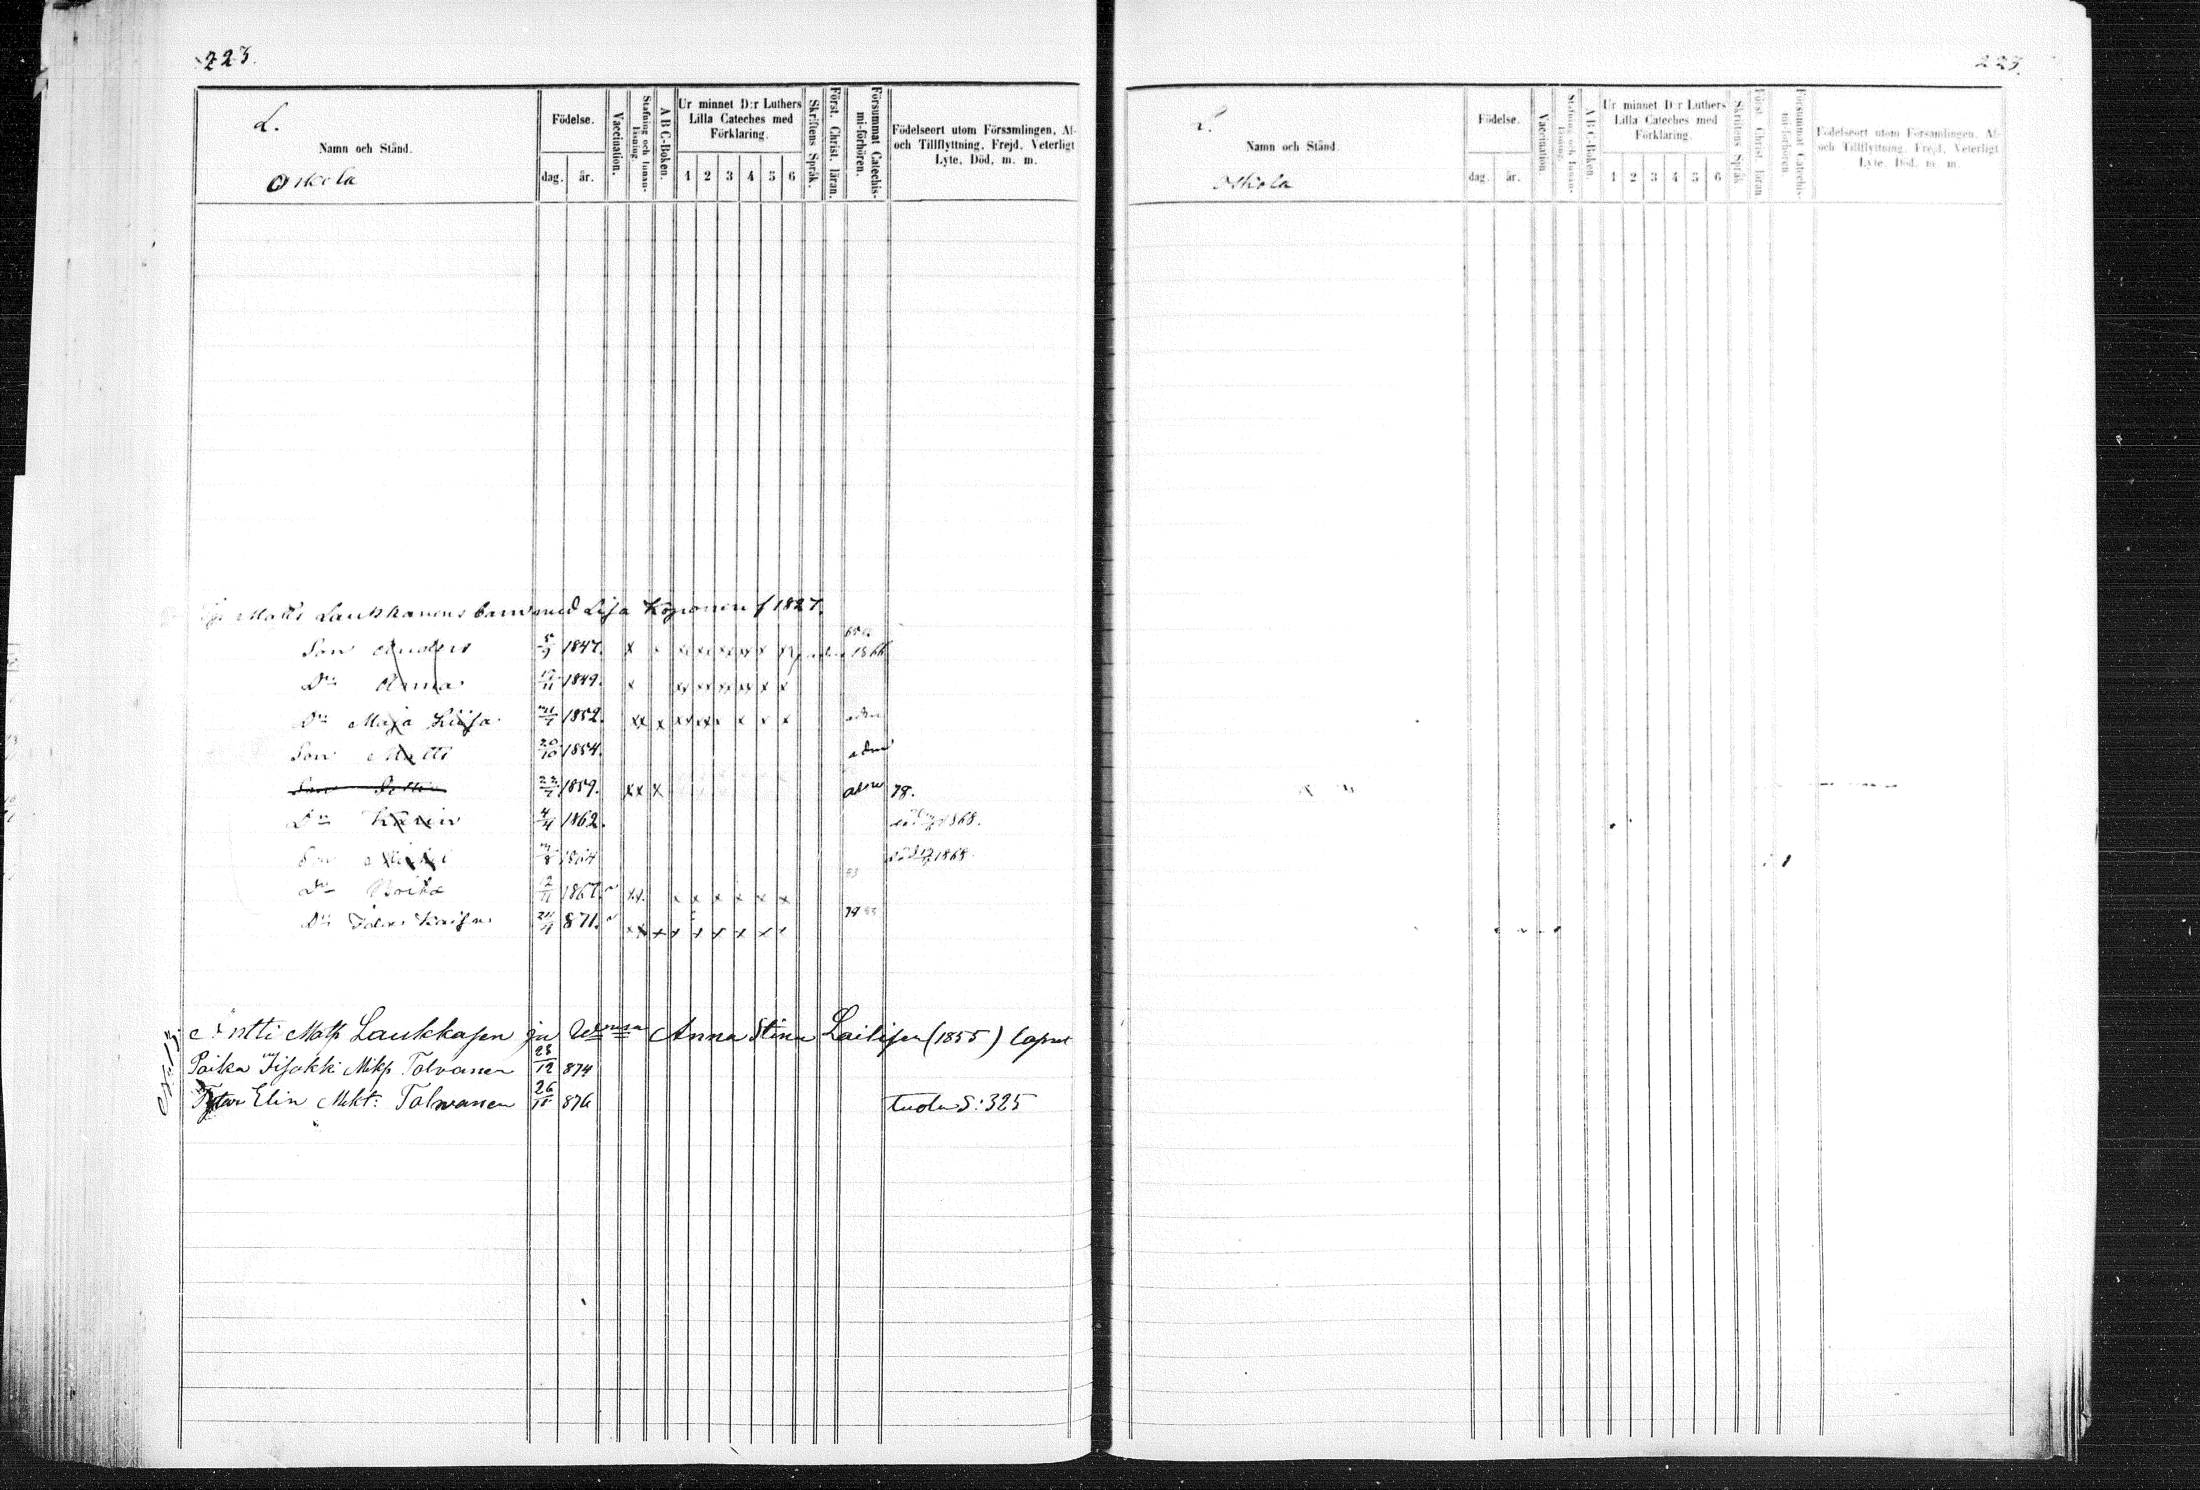 223.
L.
Namn och Stånd.
Oskola
Födelse.
dag. år.
Vaccination.
Stafning och Innan-läsning.
A B C-Boken.
Ur minnet D:r Luthers Lilla Cateches med Förklaring.
1 2 3 4 5 6
Skriftens Språk.
Först. Christ. läran.
Försummat Catechis-mi-förhören.
Födelseort utom Församlingen, Af- och Tillflyttning, Frejd, Veterligt Lyte, Död, m. m.
Matts Laukkanens barn med Lisa Koponen f 1827.
Son Anders 5/9 1847. x x x x x x 1866
Dr Anna 1849. x xx xx xx xx x x
Dr Maja Liisa 1852. xx x xx xx x x x adm
Son Matts 20/10 1854. adm
Son Petter 22/7 1859. xx x adm 78.
Dr Karin 4/4 1862. död 1868.
Son Mickel 1864 död 1868.
Dr Brita 1867. xx x x x x x x 83
Dr 871. xx x x x x x x x 79 83
Antti Matp Laukkasen ja Anna Stina Lailisen (1855) Lapset
Poika Iisakki Mikp Tolvanen 23/12 874
Tytär Elin Mikt: Tolwanen 26/11 876 tuolu S: 325
223.
L.
Namn och Stånd.
Oskola
Födelse.
dag. år.
Vaccination.
Stafning och Innan-läsning.
A B C-Boken.
Ur minnet D:r Luthers Lilla Cateches med Förklaring.
1 2 3 4 5 6
Skriftens Språk
Först. Christ. läran
Försummat Catechis-mi-förhören.
Födelseort utom Församlingen, Af- och Tillflyttning, Frejd, Veterligt Lyte, Död, m. m.